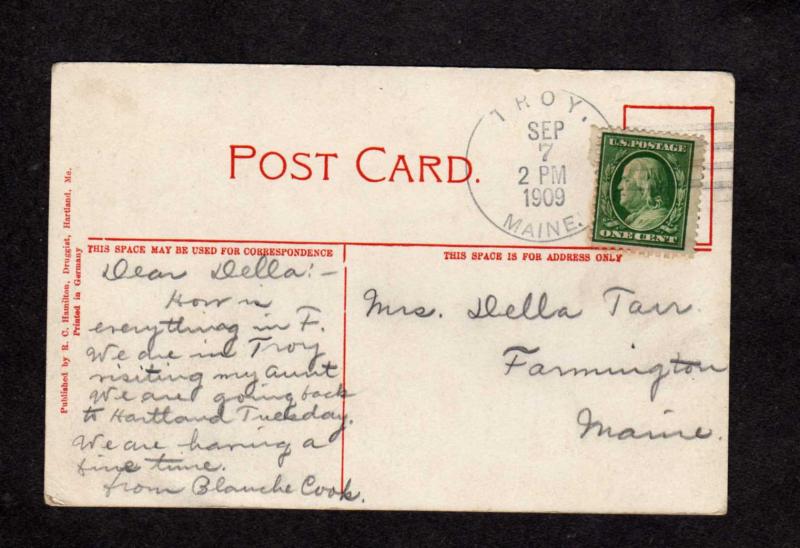 POST CARD.
TROY.
SEP
7
2 PM
1909
MAINE.
U.S. POSTAGE
ONE CENT
Published by R. C. Hamilton, Druggist, Hartland, Me.
Printed in Germany
THIS SPACE MAY BE USED FOR CORRESPONDENCE
THIS SPACE IS FOR ADDRESS ONLY
Dear Della:-
How is
everything in F.
We are in Troy
visiting my Aunt
We are going back
to Hartland Tuesday.
We are having a
fine time.
from Blanche Cook.
Mrs. Della Tarr.
Farmington
Maine.